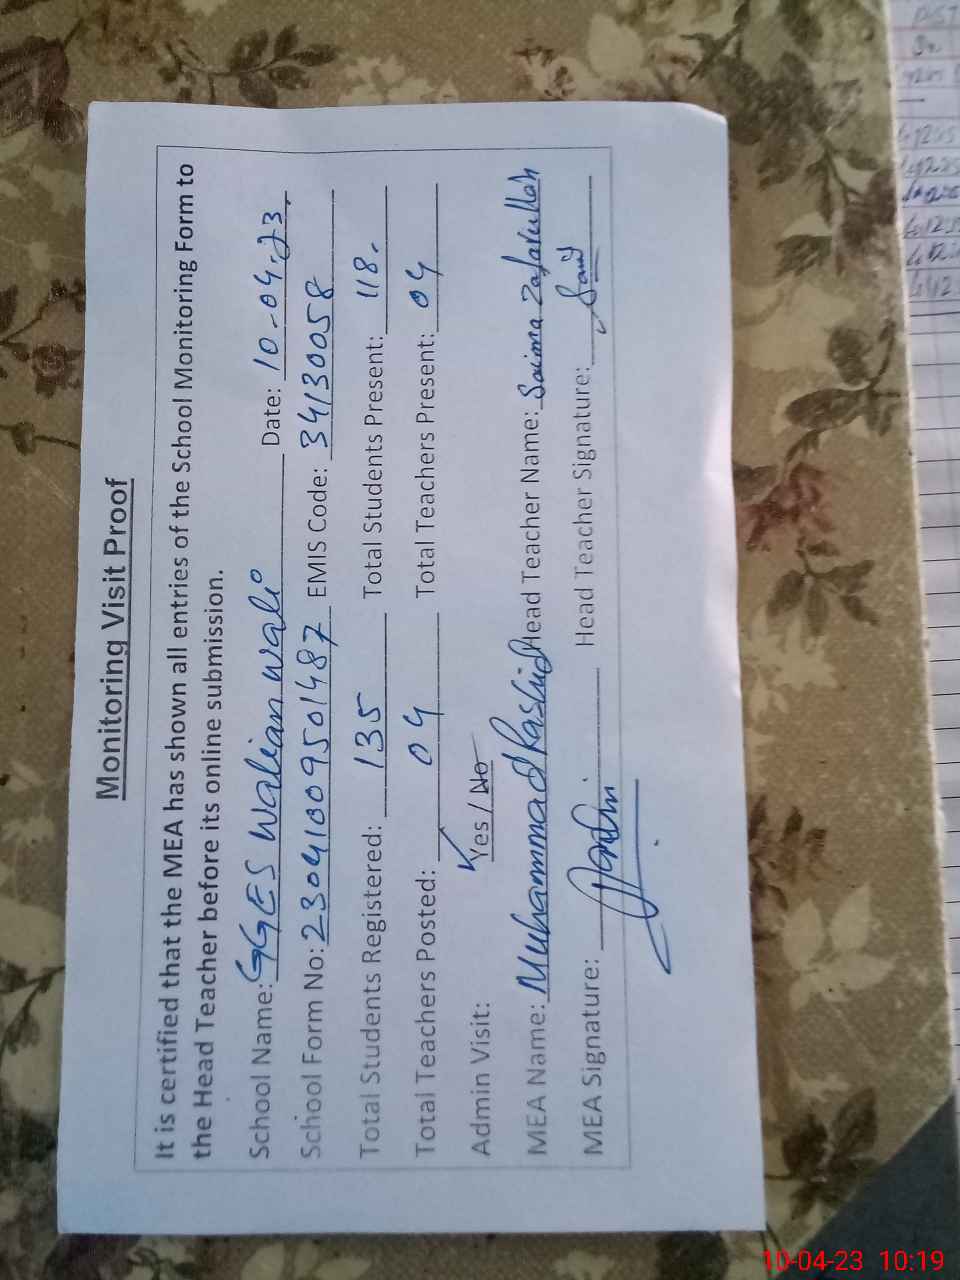 Monitoring Visit Proof
It is certified that the MEA has shown all entries of the School Monitoring Form to
the Head Teacher before its online submission.
School Name: GGES Walian wali Date: 10-04-23
School Form No: 23041009501487 EMIS Code: 34130058
Total Students Registered: 135 Total Students Present: 118.
Total Teachers Posted: 04 Total Teachers Present: 04
Admin Visit: Yes / No
MEA Name: Muhammad Rashid Head Teacher Name: Saima Zafarullah
MEA Signature: Head Teacher Signature:
10-04-23 10:19